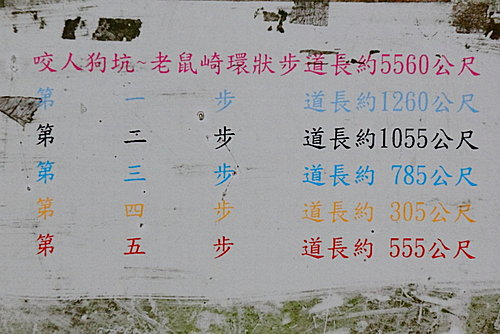 咬人狗坑~老鼠崎環狀步道長約5560公尺
第一步道長約1260公尺
第二步道長約1055公尺
第三步道長約 785公尺
第四步道長約 305公尺
第五步道長約 555公尺